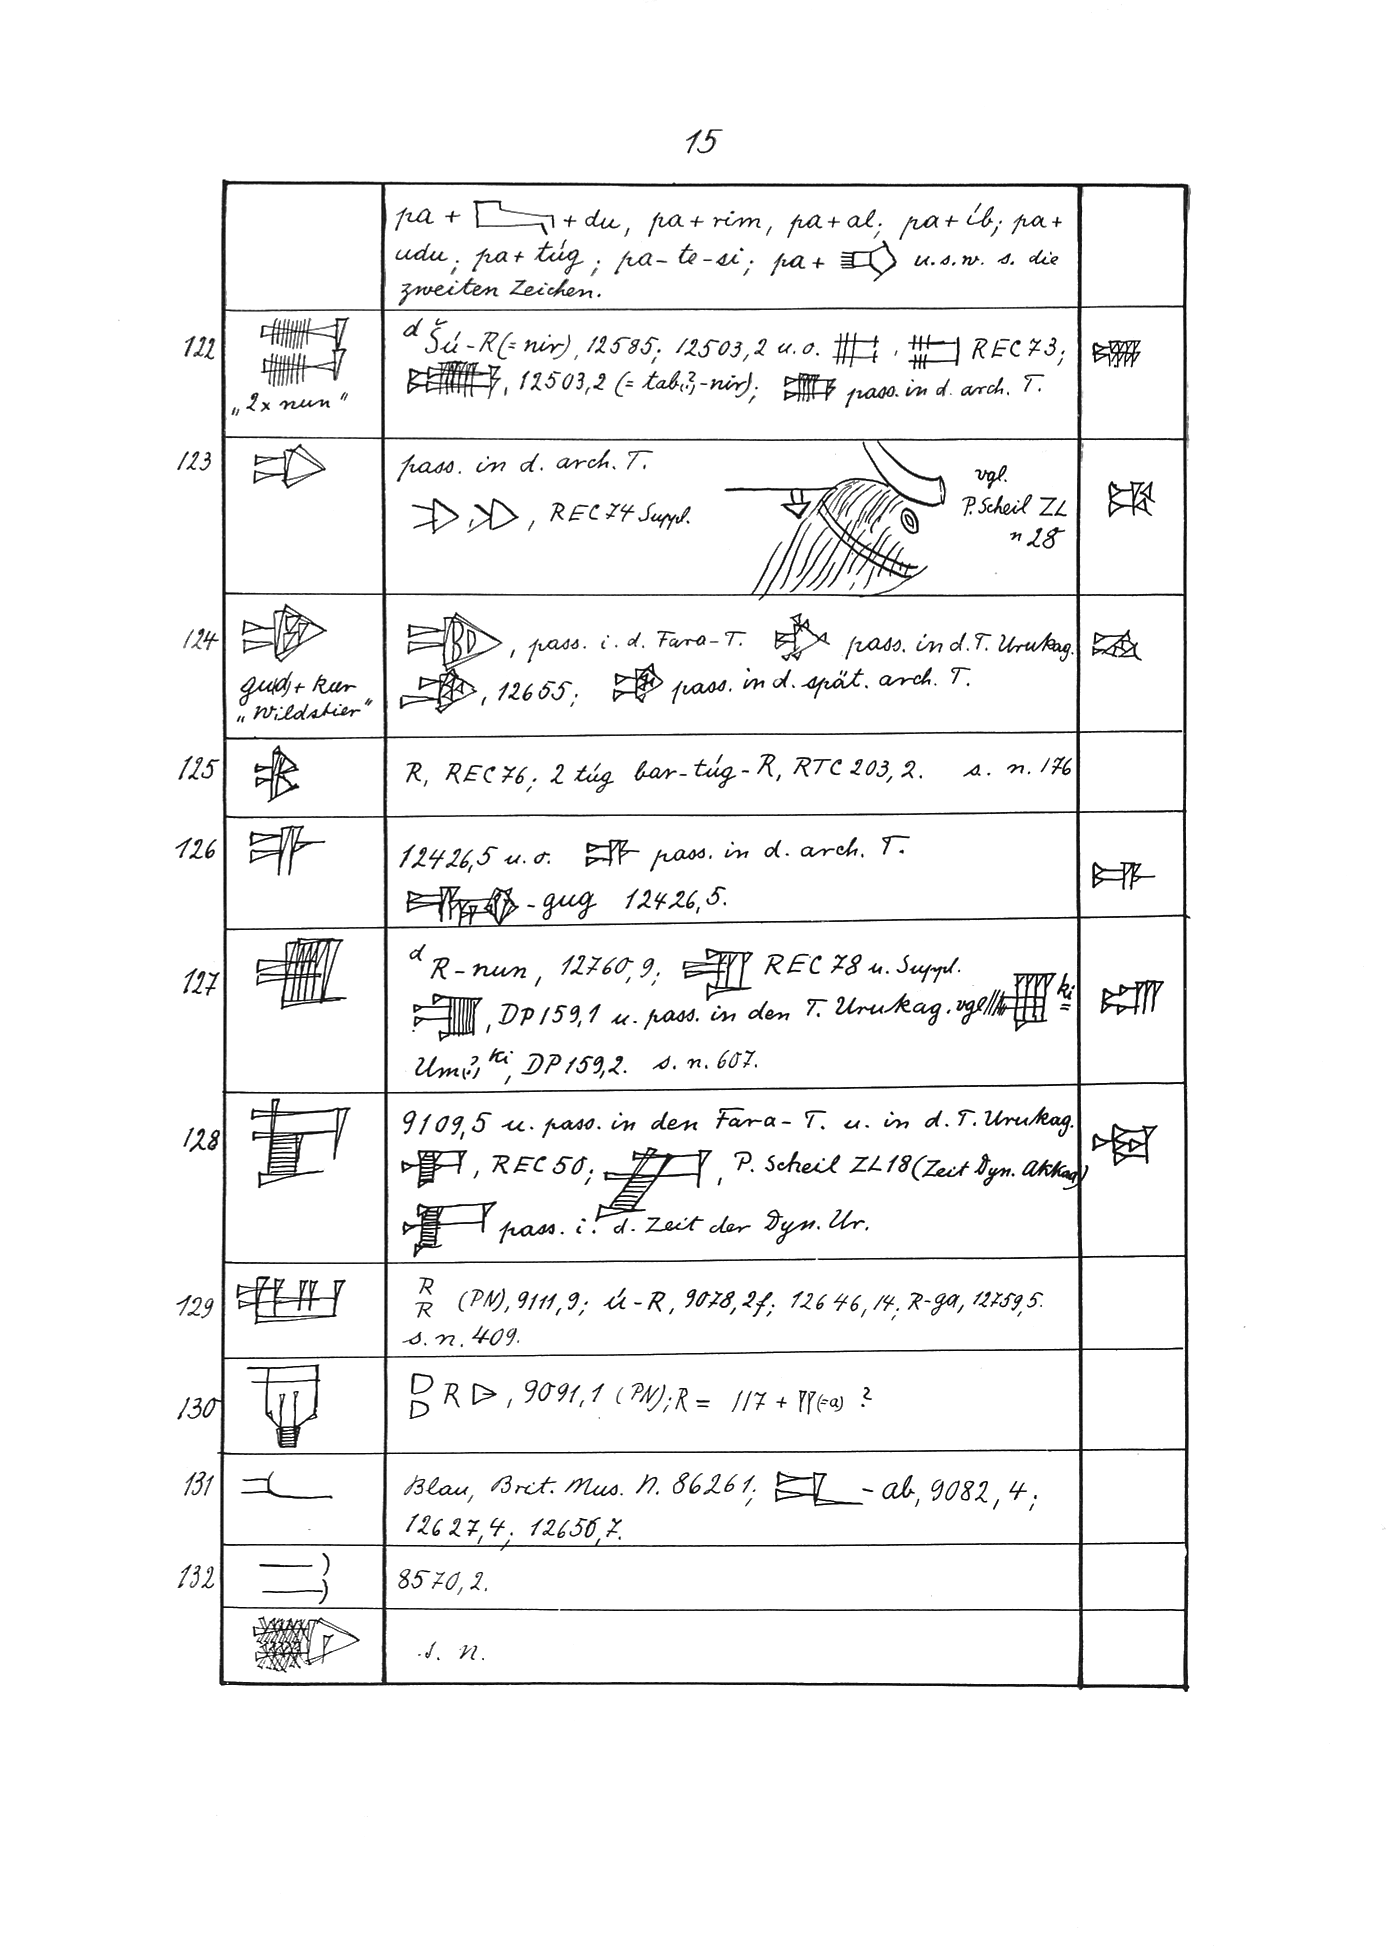 15
pa + + du, pa + rim, pa + al; pa + íb; pa +
udu; pa + túg; pa-te-si; pa + u.s.w. s. die
zweiten Zeichen.
122
"2 x nun"
d Šú-R (= nir), 12585; 12503,2 u.o. , REC 73;
, 12503,2 (= tab(?)-nir); pass. in d. arch. T.
123
pass. in d. arch. T.
, , REC 74 Suppl.
vgl.
P. Scheil ZL
n 28
124
gud + kur
"Wildstier"
, pass. i. d. Fara-T. pass. in d. T. Urukag.
, 12655; pass. in d. spät. arch. T.
125
R, REC 76; 2 túg bar-túg-R, RTC 203,2. s. n. 176
126
12426,5 u.o. pass. in d. arch. T.
-gug 12426,5.
127
d R-nun, 12760,9; REC 78 u. Suppl.
, DP 159,1 u. pass. in den T. Urukag. vgl ki =
Um(?) ki, DP 159,2. s. n. 607.
128
9109,5 u. pass. in den Fara-T. u. in d. T. Urukag.
, REC 50; , P. Scheil ZL 18 (Zeit Dyn. Akkad)
pass. i. d. Zeit der Dyn. Ur.
129
R
R (PN), 9111,9; ú-R, 9078,2f; 12646,14, R-ga, 12759,5.
s. n. 409.
130
R , 9091,1 (PN); R = 117 + (=a) ?
131
Blau, Brit. Mus. N. 86261; -ab, 9082,4;
12627,4; 12656,7.
132
8570,2.
s. n.